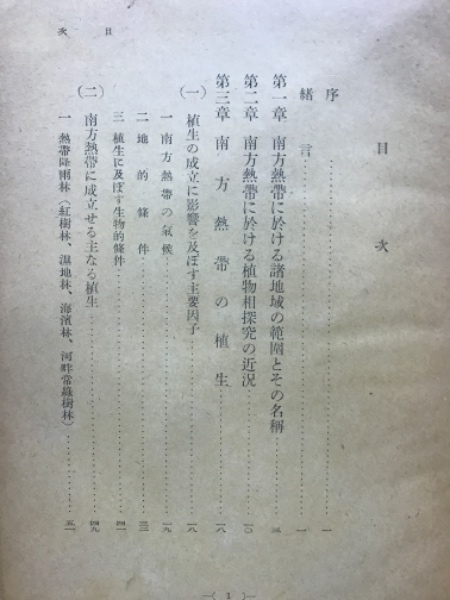 目次
目次
序……一
緒言……一
第一章 南方熱帶に於ける諸地域の範圍とその名稱……三
第二章 南方熱帶に於ける植物相探究の近況……一〇
第三章 南方熱帶の植生……一八
(一) 植生の成立に影響を及ぼす主要因子……一八
一 南方熱帶の氣候……一九
二 地的條件……三三
三 植生に及ぼす生物的條件……四一
(二) 南方熱帶に成立せる主なる植生……四九
一 熱帶降雨林(紅樹林、濕地林、海濱林、河畔常綠樹林)……五一
—( 1 )—